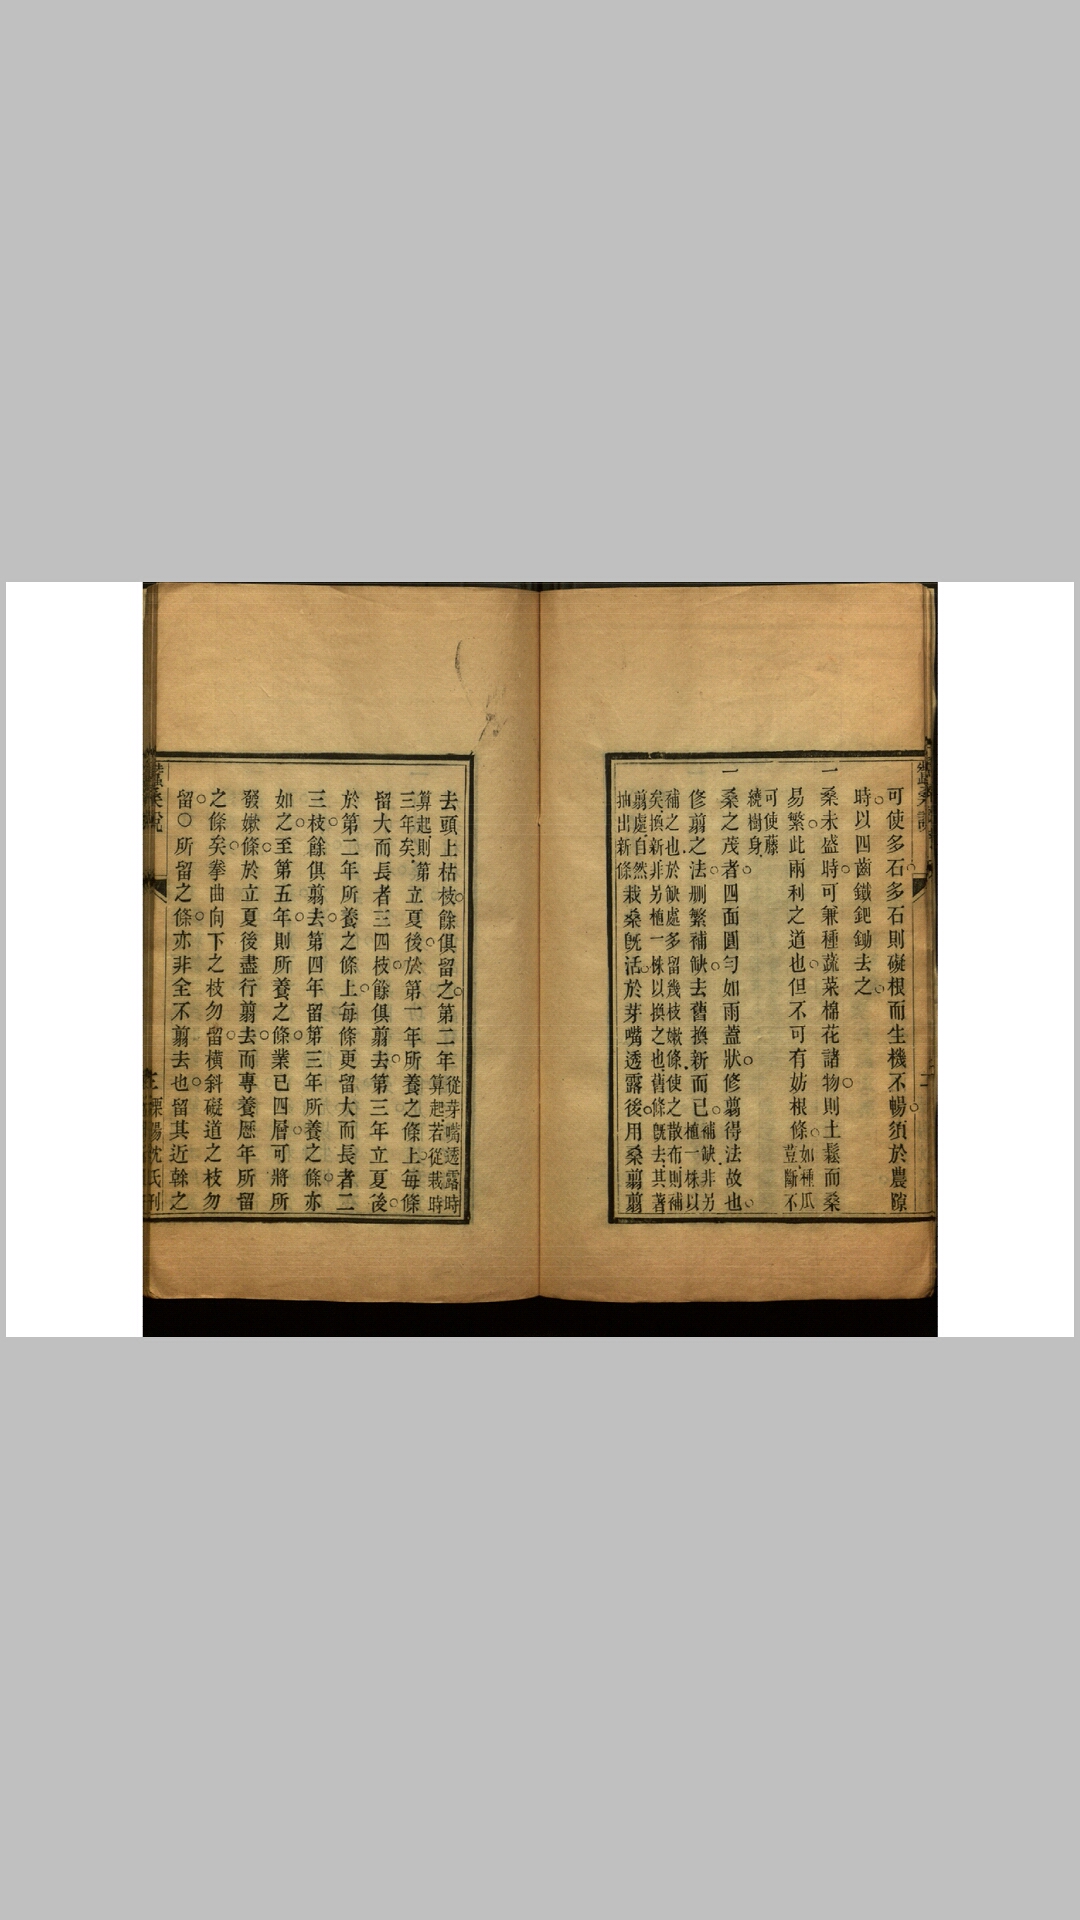 蠶桑說
二
可使多石多石則礙根而生機不暢須於農隙
時以四齒鐵鈀鋤去之
一桑未盛時可兼種蔬菜棉花諸物則土鬆而桑
易繁此兩利之道也但不可有妨根條
如種瓜
荳斷不
可使藤
繞樹身
一桑之茂者四面圓勻如雨蓋狀修翦得法故也
修翦之法刪繁補缺去舊換新而已
補缺非另
植一株以
補之也於缺處多留幾枝嫩條使之散布則補
矣換新非另植一株以換之也舊條旣去其著
翦處自然
抽出新條
栽桑旣活於芽嘴透露後用桑翦翦
去頭上枯枝餘俱留之第二年
從芽嘴透露時
算起若從栽時
算起則第
三年矣
立夏後於第一年所養之條上每條
留大而長者三四枝餘俱翦去第三年立夏後
於第二年所養之條上每條更留大而長者二
三枝餘俱翦去第四年留第三年所養之條亦
如之至第五年則所養之條業已四層可將所
發嫩條於立夏後盡行翦去而專養歷年所留
之條矣拳曲向下之枝勿留橫斜礙道之枝勿
留○所留之條亦非全不翦去也留其近榦之
蠶桑說
三
溧陽沈氏刊